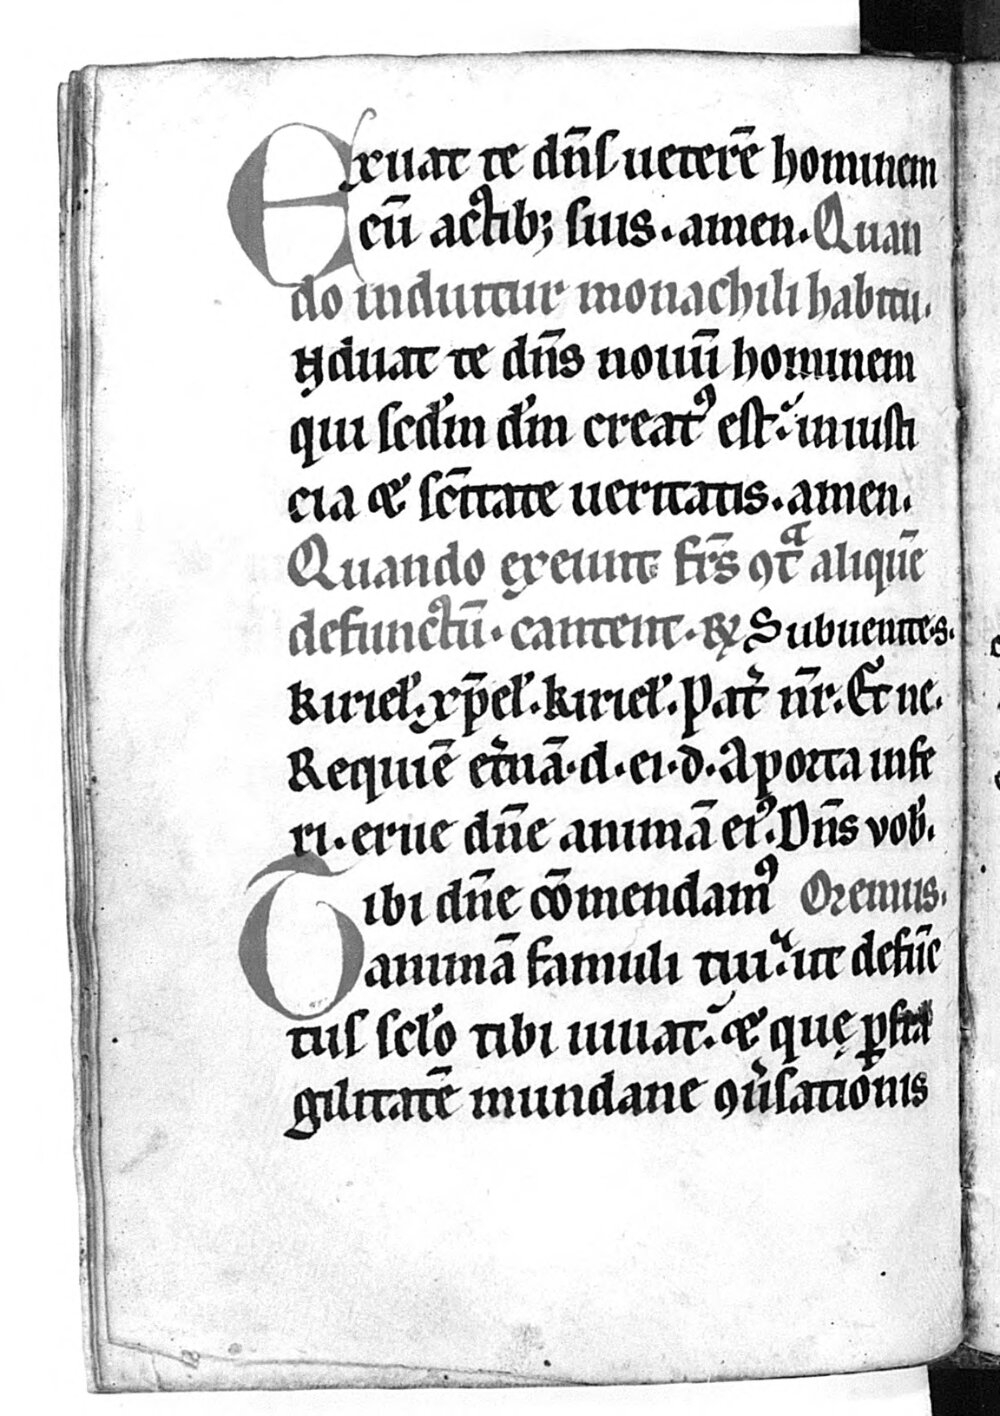 Exuat te dn̄s ueterē hominem
cū actib; suis. amen. Quan
do induitur monachili habitu.
Nduat te dn̄s nouū hominem
qui scd'm d'm creatꝰ est. in iusti
cia & sc̄itate ueritatis. amen.
Quando exeunt fr̄s ꝯtͣ aliquē
defunctū. cantent. ℞ Subuenite.s.
kiriel'. xp̄el'. kiriel'. Pat' nr̄. Et ne.
Requiē et'nā. d. ei. d. A porta infe
ri. erue dn̄e animā eiꝰ. Dn̄s vob'.
Tibi dn̄e cōmendamꝰ Oremus.
animā famuli tui. ut defūc
tus scl'o tibi uiuat. & quę ꝑ fra
gilitatē mundane ꝯu'sationis